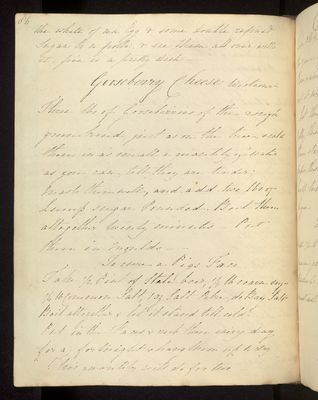 86
the white of an Egg & some double refined
Sugar to a froth & ice them all over with
it, fire is a pretty dish
Gooseberry Cheese
Three lbs of Gooseberries of the rough
green kind, just as on the tree, scald
them in as small a quantity of water
as you can, till they are tender
mash them well, and add two lbs of
Lump Sugar Pounded. Boil them
altogether twenty minutes Put
them in moulds
To cure a Pigs Face
Take Pint of Stale beer,
common Salt, Salt Petre, do Bay Salt
Boil altogether & let it stand till cold
Put in the Face & rub them every day
for a fortnight & have them up to dry
This quantity will do for two